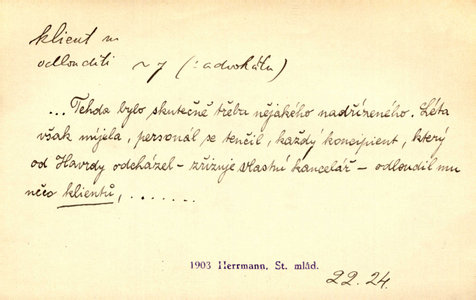 klient m
odlouditi ~ y (: advokátu)
... Tehda bylo skutečně třeba nějakého nadřízeného. Léta
však míjela, personál se tenčil, každý koncipient, který
od Havrdy odcházel - zřizuje vlastní kancelář - odloudil mu
něco klientů, .......
1903 Herrmann, St. mlád.
22.24.